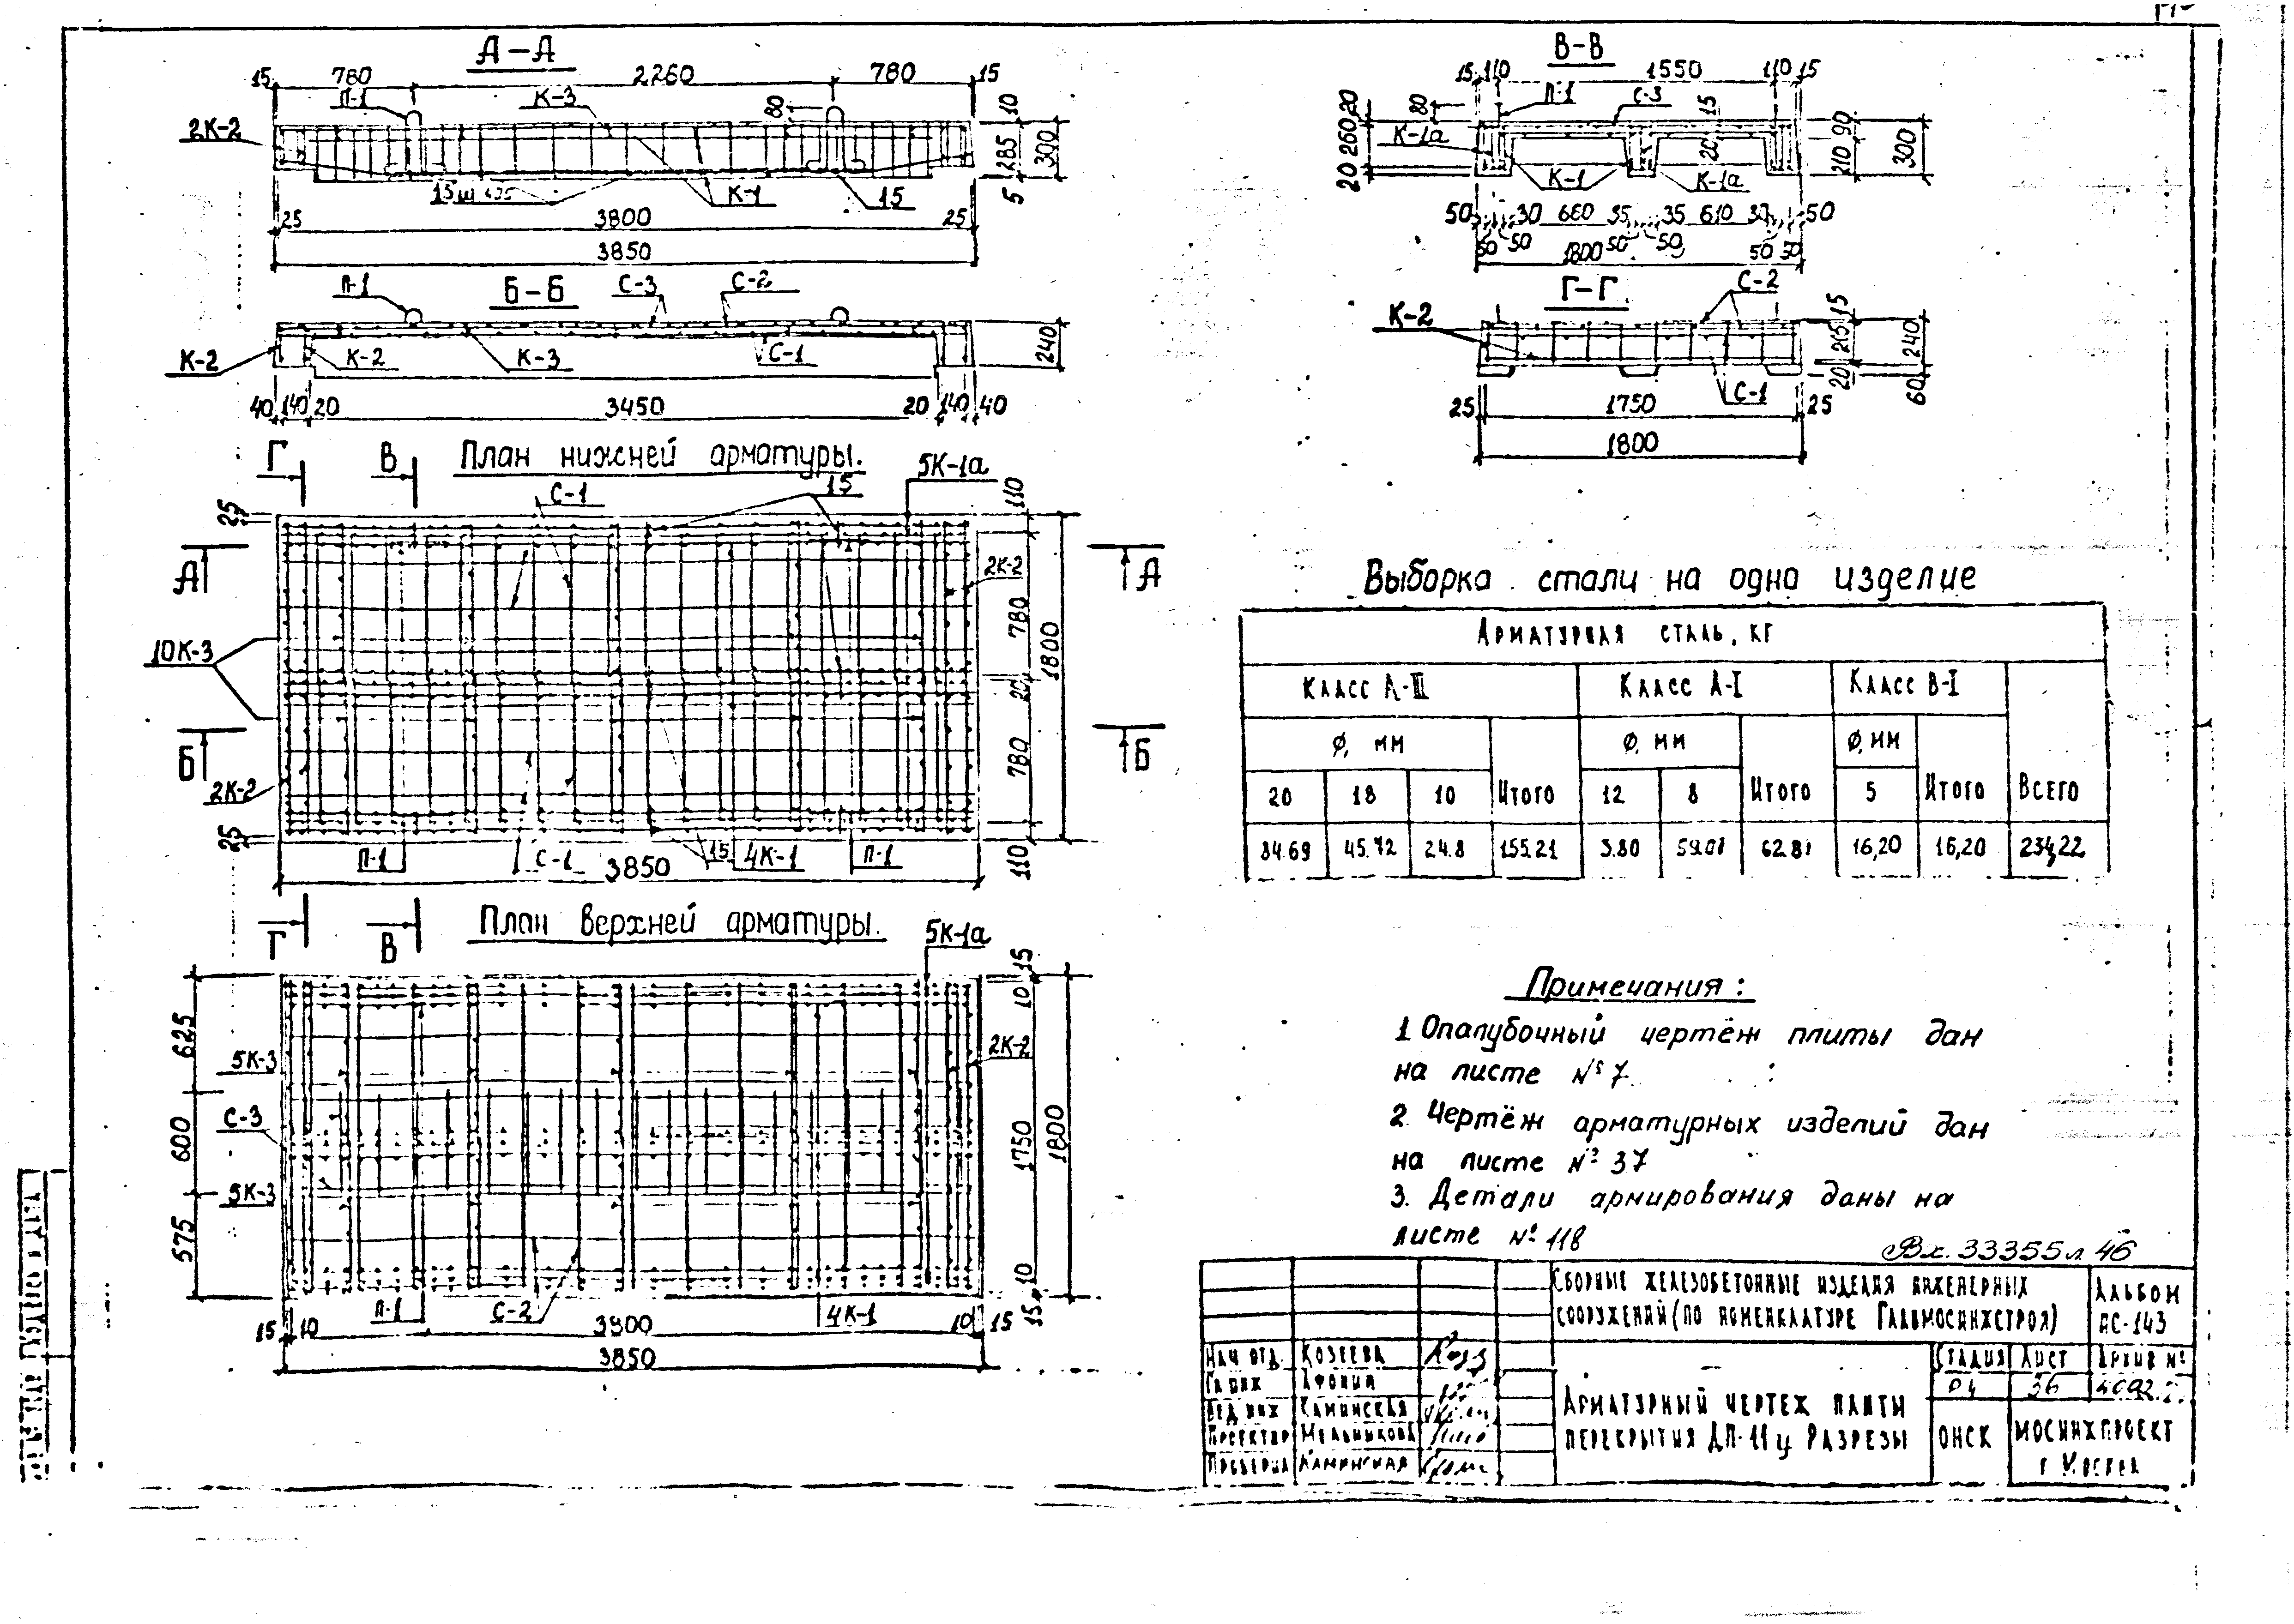 А-А
15 780 2260 780 15
П-1 К-3 80 10
2К-2
285 300
5
15 шт К-1 15
25 3800 25
3850
П-1 Б-Б С-3 С-2
К-2 К-2 К-3 С-1 240
40 140 20 3450 20 140 40
В-В
15 110 1550 110 15
80 П-1 С-3 15
20 260 20
К-1а
20
90 210 300
К-1 К-1а
50 30 660 35 35 610 30 50
50 50 50 50 50 50
1800
Г-Г С-2
К-2
15 205 20 240 60
С-1
25 1750 25
1800
Г В План нижней арматуры. 5К-1а
С-1 15
25 110
А А
2К-2
780
10К-3
20 1800
Б Б
780
2К-2
25
П-1 С-1 15 4К-1 П-1
3850 110
Г В План верхней арматуры. 5К-1а
15
10
625
5К-3 2К-2
С-3
600 1750 1800
5К-3
575
10
15
П-1 С-2 4К-1
15 10 3800 10 15
3850
Выборка стали на одно изделие
Арматурная сталь, кг
Класс А-III Класс А-I Класс В-I
Ø, мм Ø, мм Ø, мм
20 18 10 Итого 12 8 Итого 5 Итого Всего
84.69 45.72 24.8 155.21 3.80 59.01 62.81 16,20 16,20 234,22
Примечания:
1 Опалубочный чертёж плиты дан
на листе № 7.
2 Чертёж арматурных изделий дан
на листе № 37
3. Детали армирования даны на
листе № 118
Вх. 33355 л 46
Сборные железобетонные изделия инженерных
сооружений (по номенклатуре Главмосинжстроя)
Альбом
РС-143
Нач отд. Козеева
Гл инж Афонин
Вед инж Каминская
Проектир Мельникова
Проверил Каминская
Арматурный чертеж плиты
перекрытия ДП-11ц Разрезы
Стадия Лист Архив №
РЧ 36
ОНСК
Мосинжпроект
г Москва